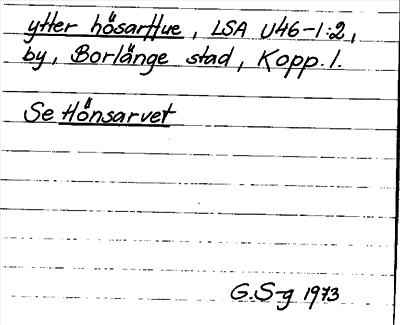 ytter hösarHue, LSA U46-1:2,
by, Borlänge stad, Kopp. l.
Se Hönsarvet
G.S-g 1973